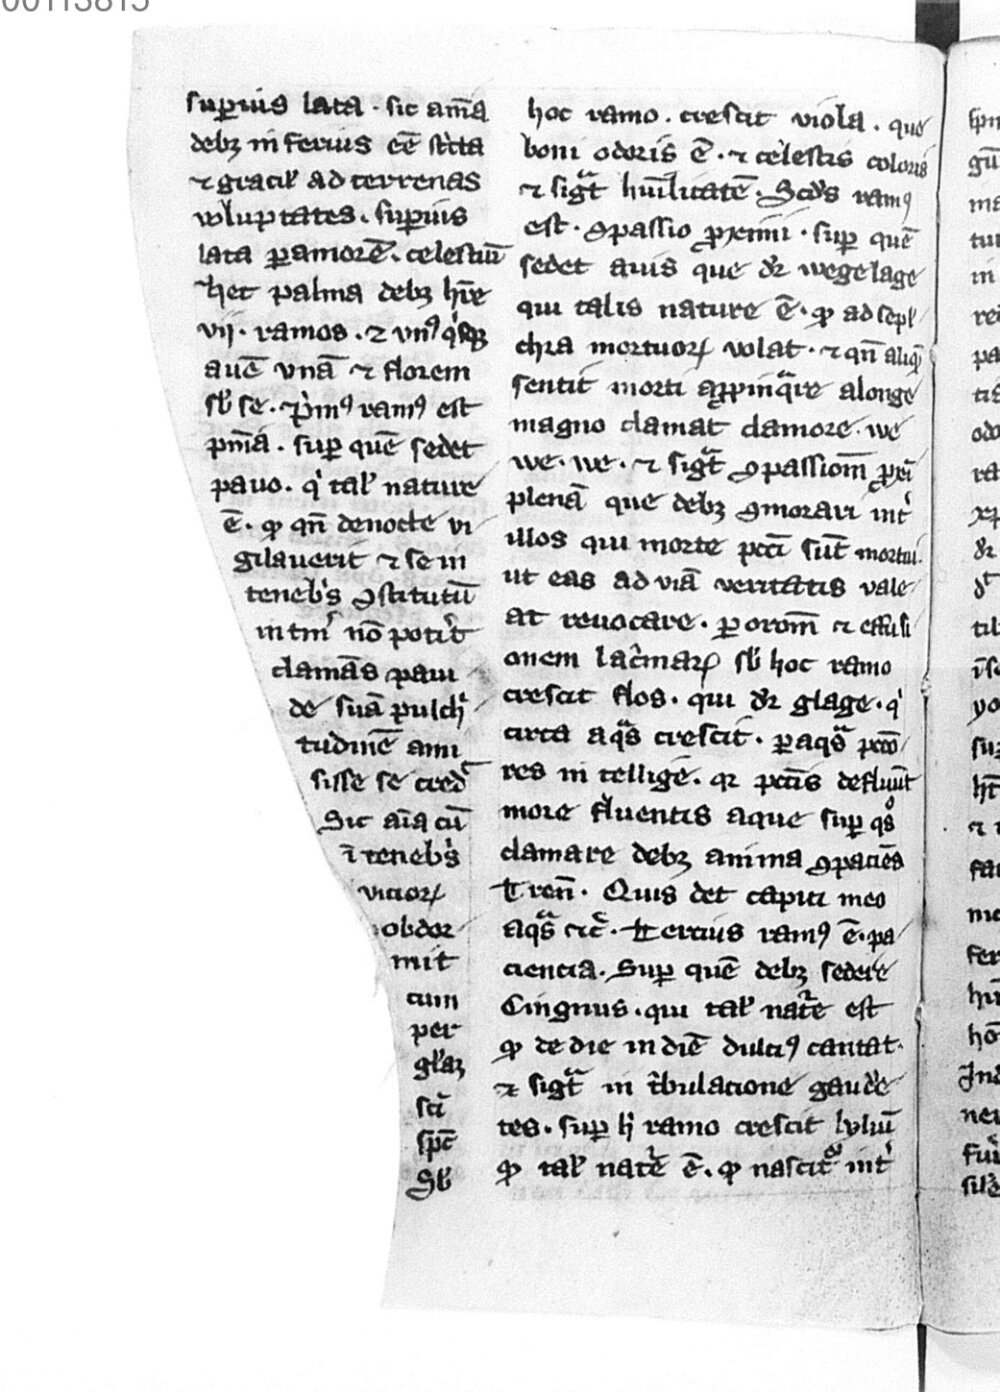 00113815
suꝑius lata · sic aīa
debꝫ inferius eē strīta
⁊ gracil' ad terrenas
voluptates . suꝑius
lata ꝑ amorē . celestiū
hec palma debꝫ hr̄e
vij · ramos . ⁊ vnꝰ qͥsqꝫ
auē vnā ⁊ florem
sb' se . pͥmꝰ ramꝰ est
pnīa . suꝑ quē sedet
pauo . qͥ tal' nature
ē . ꝙ qn̄ de nocte vi
gilauerit ⁊ se in
tenebͥs ꝯstitutū
intm̄ nō potͥt
clamās paui
de suā pulchͥ
tudinē ami
sisse se cred
Sic aīa cū
ī tenebͥs
vicioꝝ
obdor
mit
cum
per
gr̄aꝫ
sci
spc̄
Sb'
hoc ramo . crescit viola . que
boni odoris ē . ⁊ celestis coloris
⁊ sigᵃt humilitatē . Scd's ramꝰ
est . ꝯpassio ꝓximi . suꝑ quē
sedet auis que dr̄ wegelage
qui talis nature ē . ꝙ ad sepl'
chra mortuoꝝ volat . ⁊ qn̄ aliqͫ
sentit morti aꝓpinqᵃre a longe
magno clamat clamore . we
we . we . ⁊ sigᵃt ꝯpassiom̄ ꝓxī
plenā que debꝫ ꝯmorari intͥ
illos qui morte pcc̄i sūt mortui .
ut eas ad viā veritatis vale
at reuocare . ꝑ orom̄ ⁊ effusi
onem lacͥmaꝝ sb' hoc ramo
crescit flos . qui dr̄ glage . qͥ
circa aqᵃs crescit . ꝑ aqᵃs pcc̄o
res intelligē . qꝛ pcc̄is defluūt
more fluentis aque suꝑ qᵒs
clamare debꝫ anima ꝯpaciēs
Tren̄ . Quis det capiti meo
aqᵃs ⁊c̄ . Tercius ramꝰ ē . pa
ciencia . Suꝑ quē debꝫ sedere
Cingnus . qui tal' natͬe est
ꝙ de die in diē dulciꝰ cantat .
⁊ sigᵃt in tͥbulacione gaudē
tes . suꝑ hͦ ramo crescit lyliū
ꝙ tal' natͬe ē . ꝙ nascitͬ intͥ